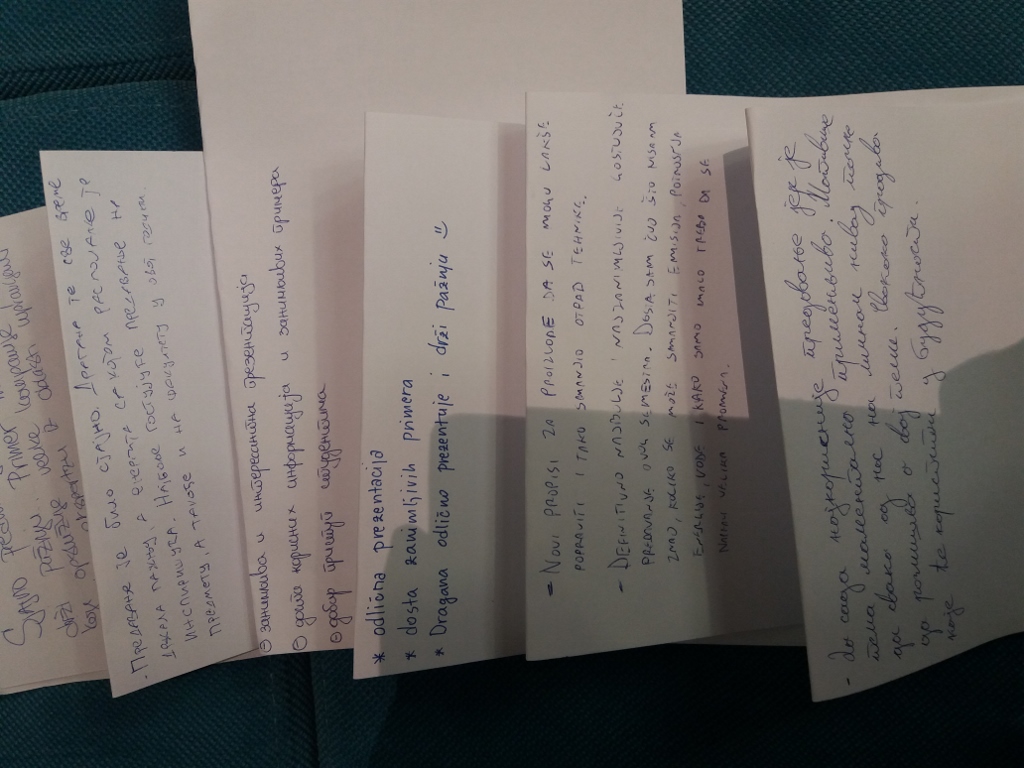 držī pažnju.
- Предавање је било сјајно. Драгана је све време
држала пажњу, а енергија са којом располаже је
инспиришућа. Најбоље гостујуће предавање на
предмету, а такође и на факултету у овој години.
⊖ занимљива и интересантна презентација
⊖ доста корисних информација и занимљивих примера
⊖ добар приступ студентима
* odlična prezentacija
* dosta zanimljivih primera
* Dragana odlično prezentuje i drži pažnju :)
- NOVI PROPISI ZA PROIZVODE DA SE MOGU LAKŠE
POPRAVITI I TAKO SMANJIO OTPAD TEHNIKE.
- DEFINITIVNO NAJBOLJE I NAJZANIMLJIVIJE GOSTUJUĆE
PREDAVANJE OVOG SEMESTRA. DOSTA SAM ČUO ŠTO NISAM
ZNAO, KOLIKO SE MOŽE SMANJITI EMISIJA, POTROŠNJA
ENERGIJE, VODE I KAKO SAMO MALO TREBA DA SE
NAPRAVI VELIKA PROMENA.
- До сада најкорисније предавање јер је
тема моментално применљива. Мотивише
да свако од нас на личном нивоу почне
да размишља о овој теме. Свакако градиво
које ће користити у будућности.